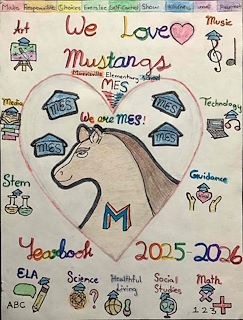 Make Responsible Choices Exercise Self-Control Show
We Love
Art
Music
Mustangs
Morrisville Elementary School
MES
Media
MES
MES
Technology
We are MES!
MES
MES
Stem
Guidance
M
Yearbook 2025-2026
ELA
Science
Healthful Living
Social Studies
Math
?
ABC
123